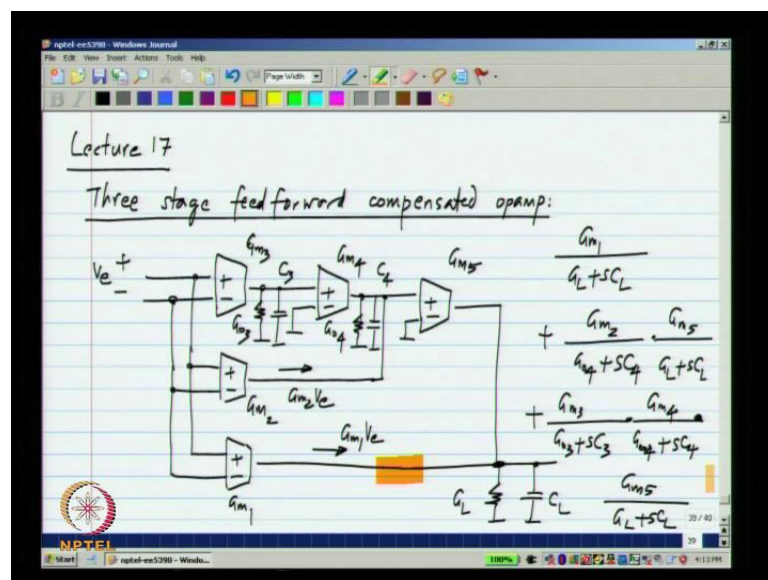 nptel-ee5390 - Windows Journal
File Edit View Insert Actions Tools Help
Page Width
B I
Lecture 17
Three stage feedforward compensated opamp:
Ve + −
Gm3 C3 Gm4 C4 Gm5
+ − + − + −
Go3 Go4
+ − Gm2 Gm2Ve
+ − Gm1 Gm1Ve
GL CL
Gm1 / GL+SCL
+ Gm2 / Go4+SC4 · Gm5 / GL+SCL
+ Gm3 / Go3+SC3 · Gm4 / Go4+SC4 ·
Gm5 / GL+SCL
39 / 40
39
NPTEL
Start
nptel-ee5390 - Windo...
100%
4:13 PM